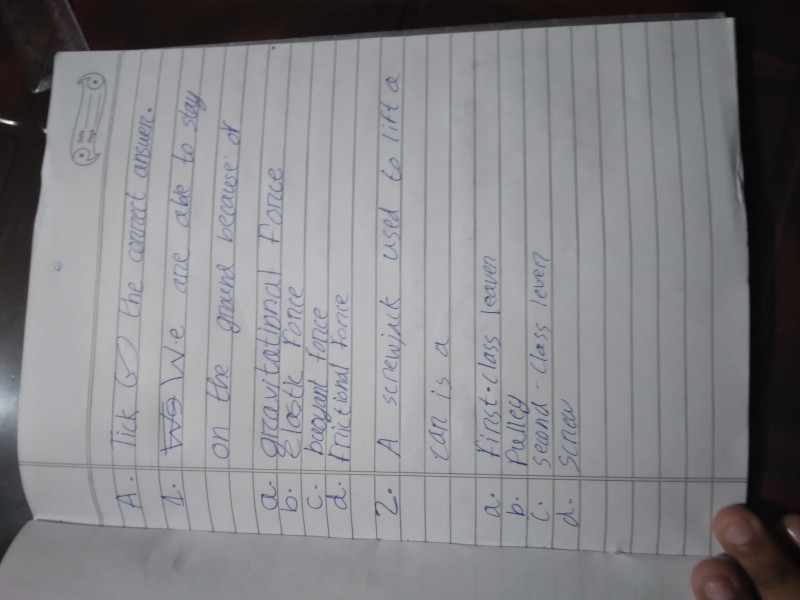 Date
Page
A. Tick (✓) the correct answer.
1. We are able to stay
on the ground because of
a. gravitational force
b. elastic force
c. buoyant force
d. frictional force
2. A screwjack used to lift a
car is a
a. First-class leaver
b. Pulley
c. seond-class lever
d. screw